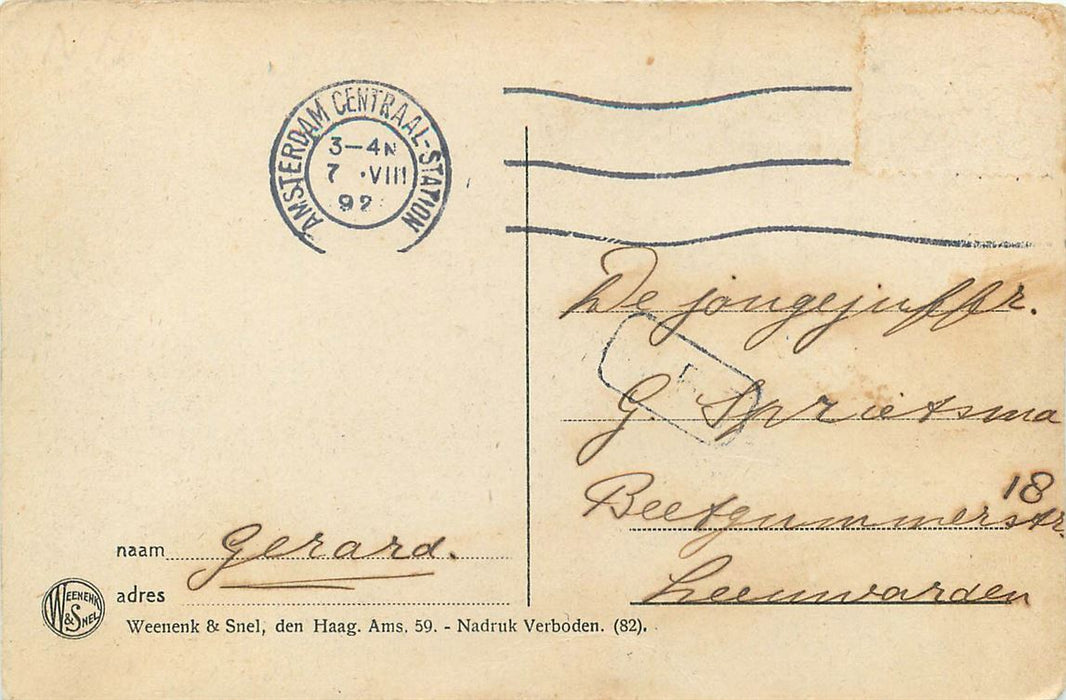 AMSTERDAM CENTRAAL-STATION
3-4N
7 ·VIII
92
De jongejuffr.
G. Sprietsma
18
Beetgummerstr.
Leeuwarden
naam Gerard.
adres
WEENENK & SNEL
Weenenk & Snel, den Haag. Ams. 59. - Nadruk Verboden. (82).